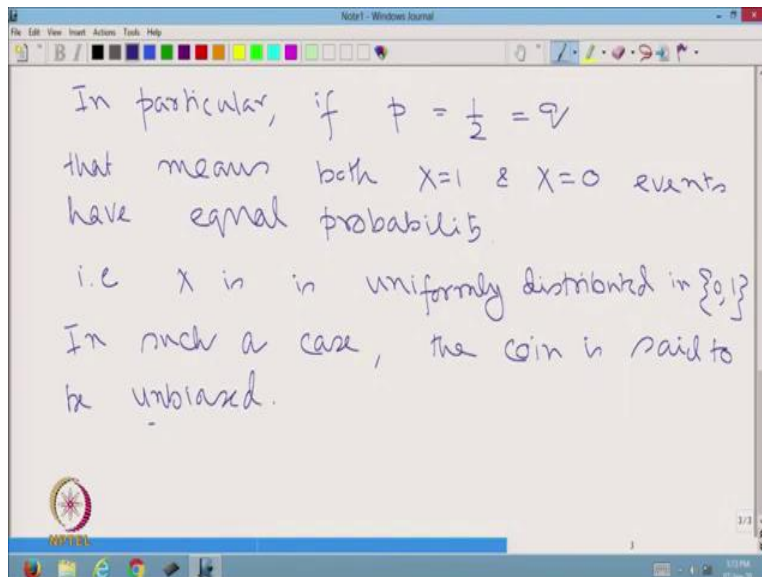 Note1 - Windows Journal
File Edit View Insert Actions Tools Help
In particular, if p = 1/2 = q
that means both X=1 & X=0 events
have equal probability.
i.e X is is uniformly distributed in {0,1}
In such a case, the coin is said to
be unbiased.
NPTEL
3/3
3